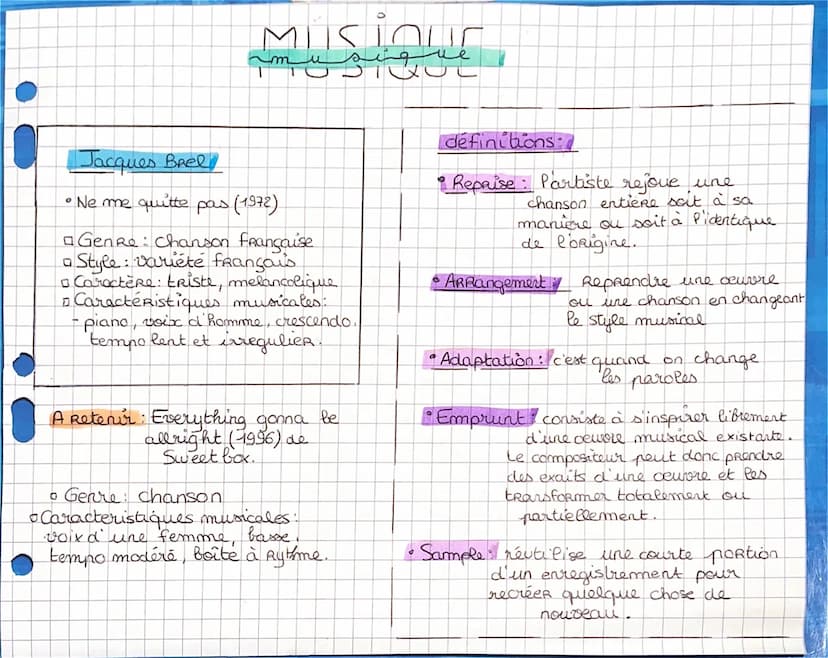 MUSIQUE
musique
Jacques Brel
• Ne me quitte pas (1972)
Genre : chanson française
Style : variété français
Caractère : triste, melancolique
Caractéristiques musicales :
- piano, voix d'homme, crescendo.
tempo lent et irregulier.
A Retenir : Everything gonna be
allright (1996) de
Sweetbox.
Genre : chanson
Caracteristiques musicales :
voix d'une femme, basse,
tempo modéré, boîte à Rythme.
définitions :
• Reprise : l'artiste rejoue une
chanson entière soit à sa
manière ou soit à l'identique
de l'origine.
• Arrangement : Reprendre une œuvre
ou une chanson en changeant
le style musical
• Adaptation : c'est quand on change
les paroles
• Emprunt : consiste à s'inspirer librement
d'une oeuvre musical existante.
Le compositeur peut donc prendre
des exaits d'une œuvre et les
transformer totalement ou
partiellement.
• Sample : réutilise une courte portion
d'un enregistrement pour
recréer quelque chose de
nouveau.